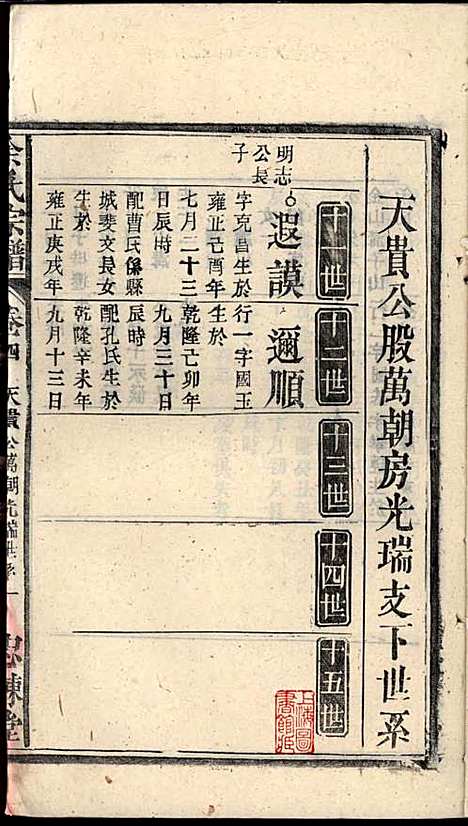 天貴公股萬朝房光瑞支下世系
十一世
十二世
十三世
十四世
十五世
明志
公長
子
遐謨
字克昌生於
雍正己酉年
七月二十三
日辰時
配曹氏係縣
城斐文長女
生於
雍正庚戌年
邇順
行一字國玉
生於
乾隆己卯年
九月三十日
辰時
配孔氏生於
乾隆辛未年
九月十三日
余氏宗譜
卷四
天貴公萬朝光瑞世系
一
忠陳堂
上海圖
書館藏